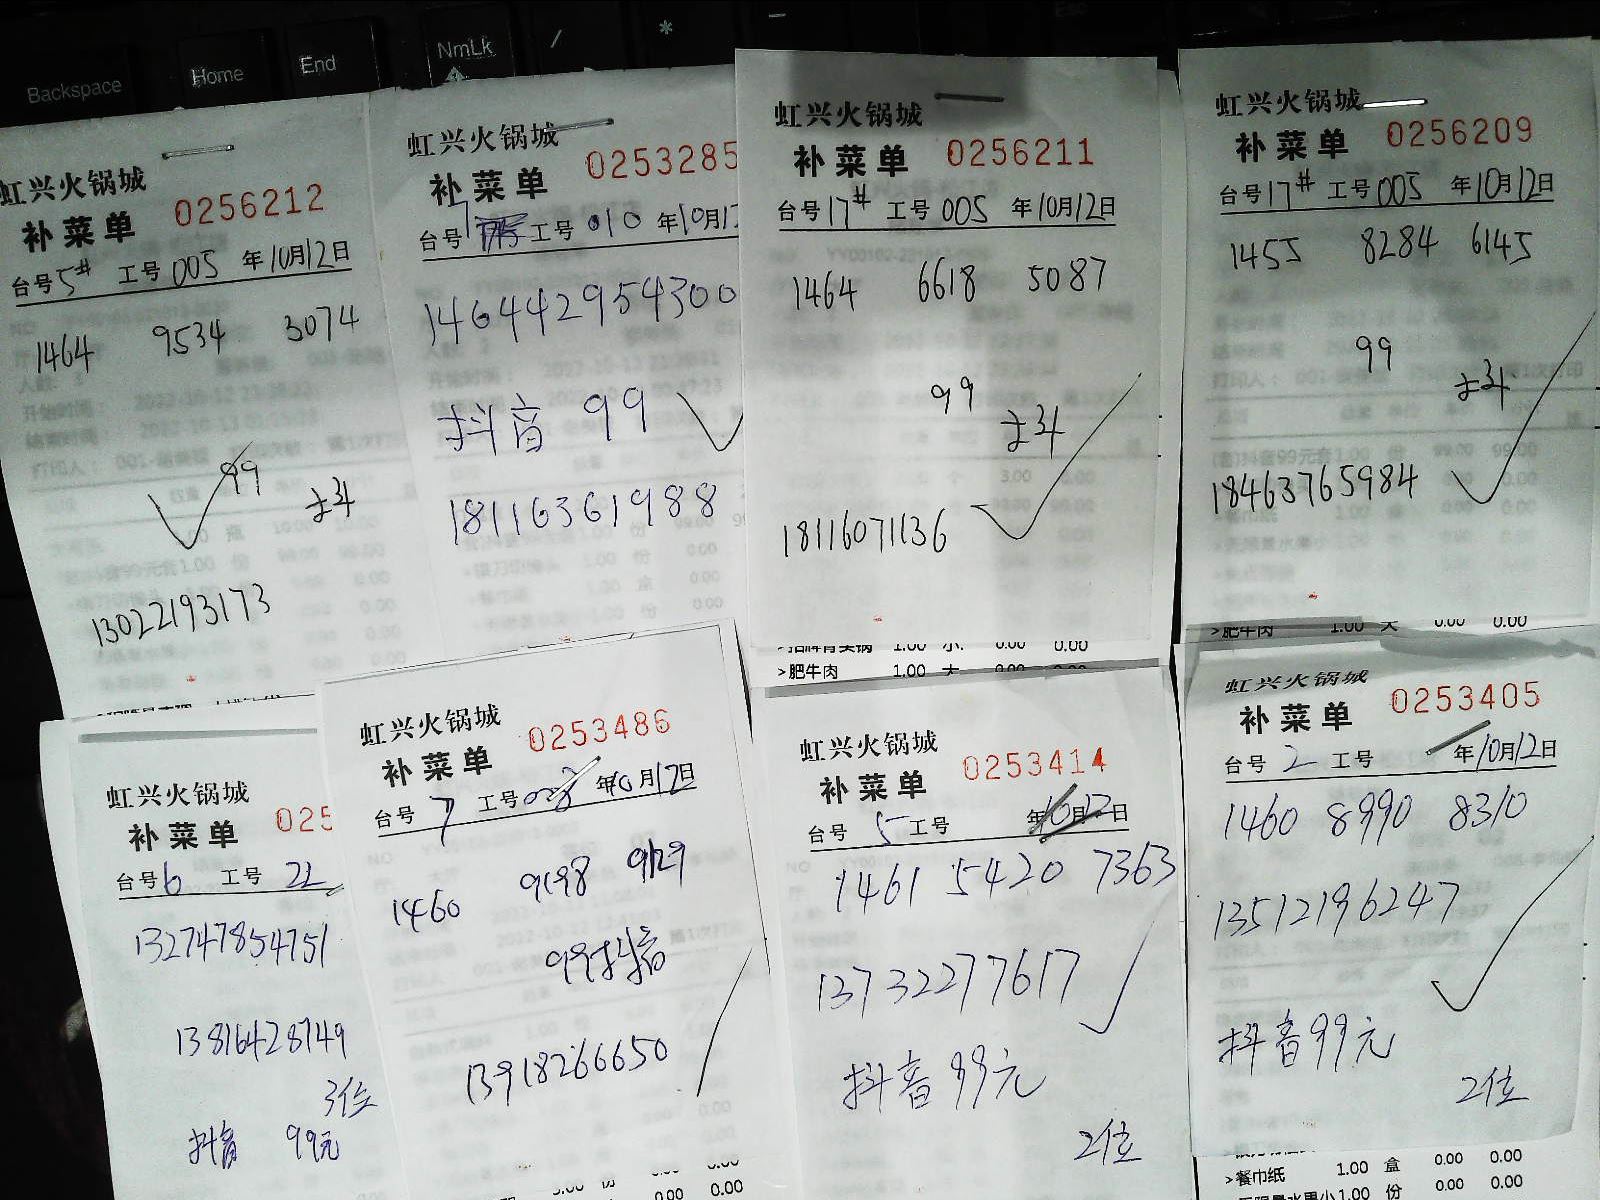 Backspace
Home
End
NmLk
/
*
-
虹兴火锅城
补菜单 0256212
台号5# 工号005 年10月12日
1464 9534 3074
99
抖
13022193173
虹兴火锅城
补菜单 0253285
台号7 工号010 年10月12
146442954300
抖音 99
18116361988
虹兴火锅城
补菜单 0256211
台号17# 工号005 年10月12日
1464 6618 5087
99
抖
18116071136
虹兴火锅城
补菜单 0256209
台号17# 工号005 年10月12日
1455 8284 6145
99
抖
18463765984
>肥牛肉 1.00 大 0.00 0.00
>招牌骨头锅 1.00 小. 0.00 0.00
>肥牛肉 1.00 大 0.00 0.00
虹兴火锅城
补菜单 025
台号6 工号22
132747854751
13816428749
3位
抖音 99元
虹兴火锅城
补菜单 0253486
台号7 工号028 年10月12日
1460 9198 9129
99抖音
13918266650
虹兴火锅城
补菜单 0253414
台号5 工号 年10月12日
1461 5420 7363
13732277617
抖音99元
2位
虹兴火锅城
补菜单 0253405
台号2 工号 年10月12日
1460 8990 8310
13512196247
抖音99元
2位
>餐巾纸 1.00 盒 0.00 0.00
1.00 份 0.00 0.00
0.00 0.00